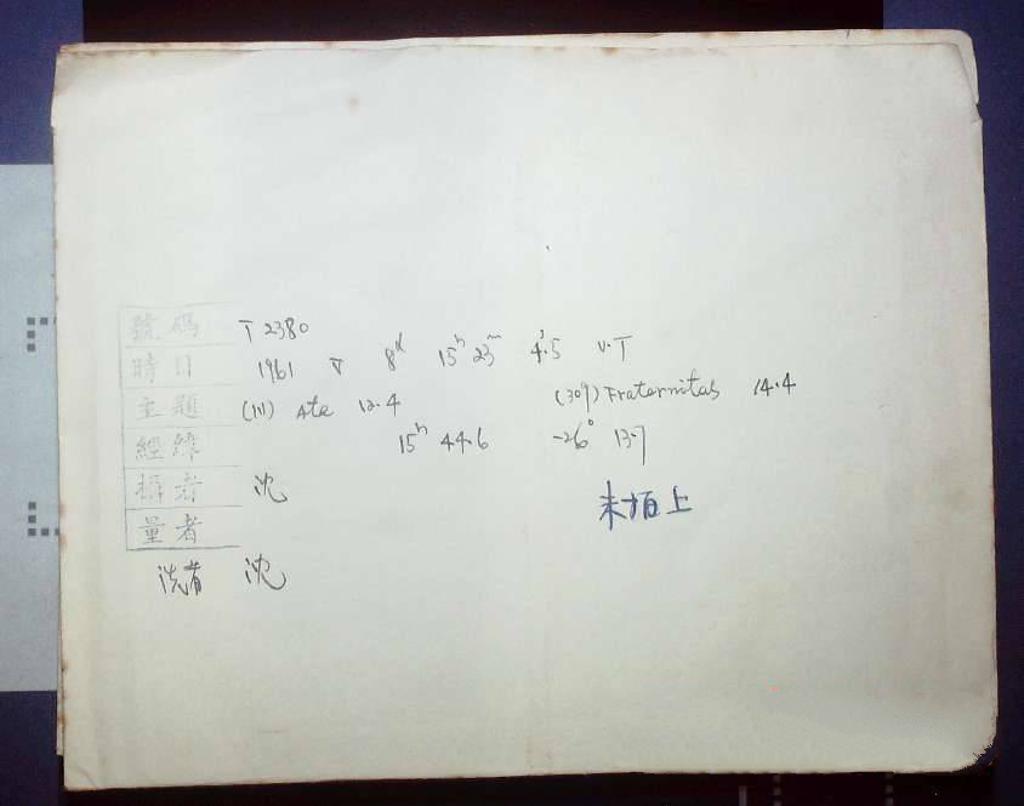 號碼 T 2380
時日 1961 V 8d 15h 23m 4s.5 U.T
主題 (111) Ate 12.4 (309) Fraternitas 14.4
經緯 15h 44.6 -26° 13.7
攝者 沈
未拍上
量者
洗者 沈